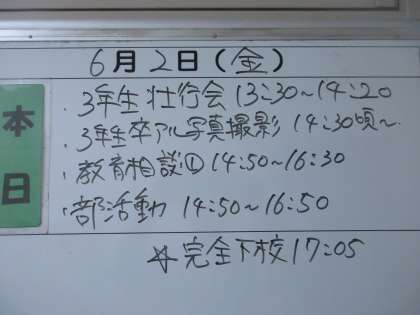 6月2日(金)
本日
・3年生壮行会 13:30~14:20
・3年生卒アル写真撮影 14:30頃~
・教育相談① 14:50~16:30
・部活動 14:50~16:50
☆完全下校17:05